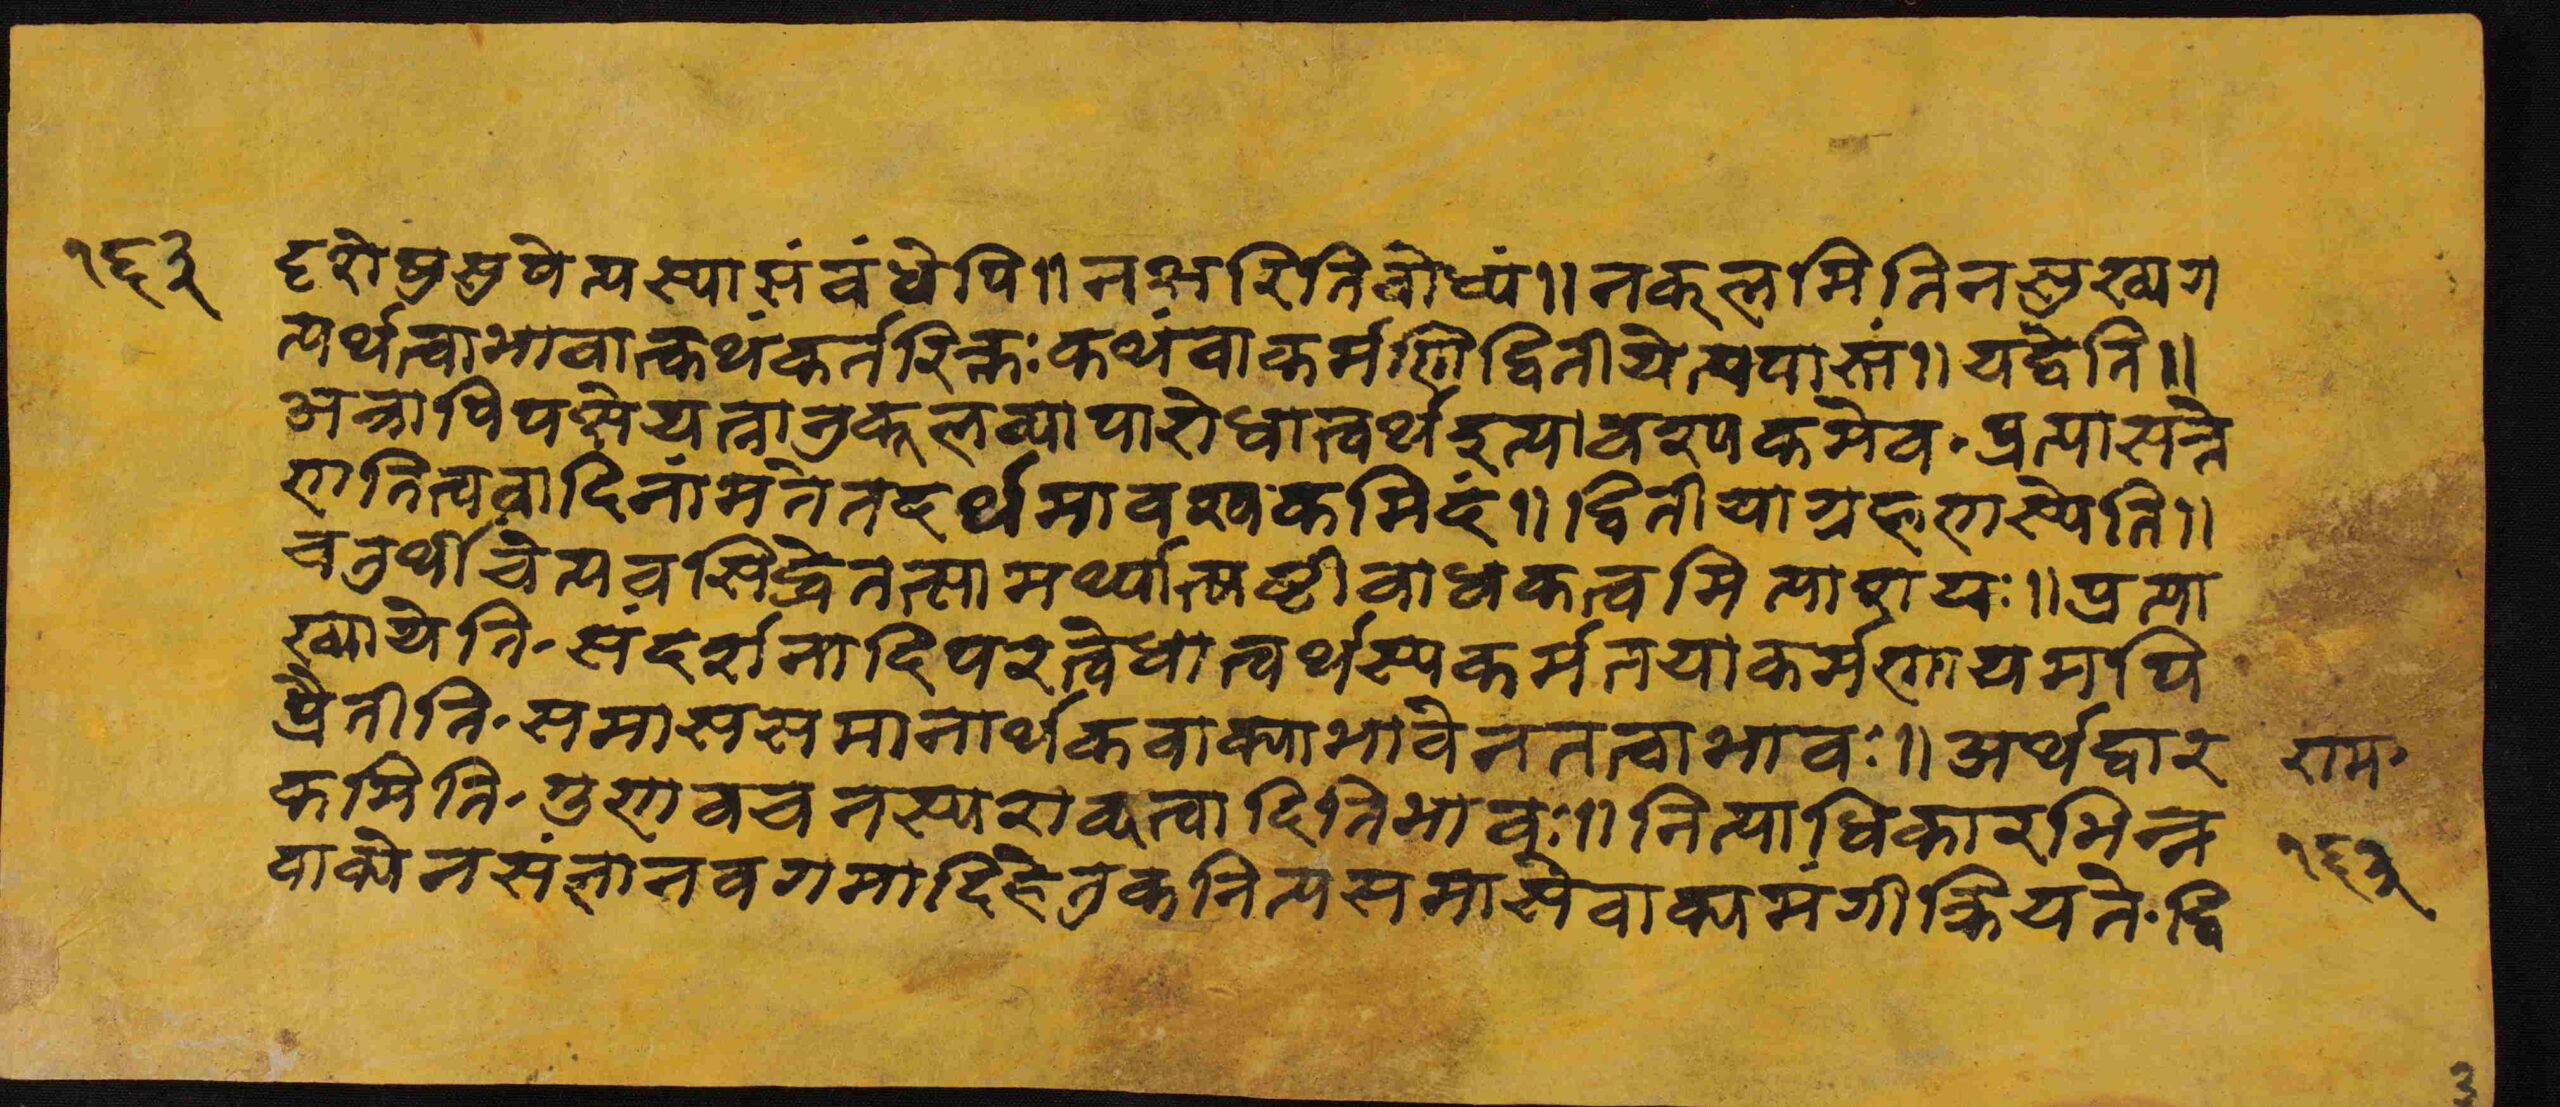 १६३
दृशेषुसुपेत्यस्यासंबंधेपि॥नञ्भरितिबोध्यं॥नकूलमितिनमुख्यग
त्यर्थत्वाभावात्कथंकर्तरिक्तः कथंवाकर्मणिद्वितीयेत्यपास्तं॥यद्वेति॥
अत्रापिपक्षेयत्नानुकूलव्यापारोधात्वर्थइत्यावश्यकमेव॰प्रत्यासत्ते
णतित्यवादिनांमतेतदर्थमावश्यकमिदं॥द्वितीयाग्रहणस्येति॥
चतुर्थीचेत्यवसिद्धेतत्सामर्थ्यात्षष्टीबाधकत्वमित्याशयः॥प्रत्या
ख्यायेति॰संदर्शनादिपरत्वेधात्वर्थस्यकर्मतयाकर्मणायमपि
प्रैतीति॰समाससमानार्थकवाक्याभावेनतत्वाभावः॥अर्थद्वार
कमिति॰गुणवचनस्यशब्दत्वादितिभावः॥नित्याधिकारभिन्न
वाक्येनसंज्ञानवगमादिहेतुकनित्यसमासेवाक्यमंगीक्रियते॰द्वि
राम॰
१६३
3